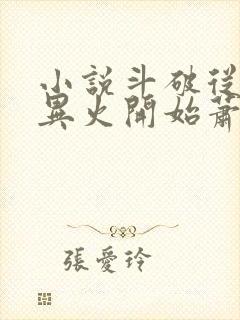 小說斗破從
異火開始蕭
張愛玲